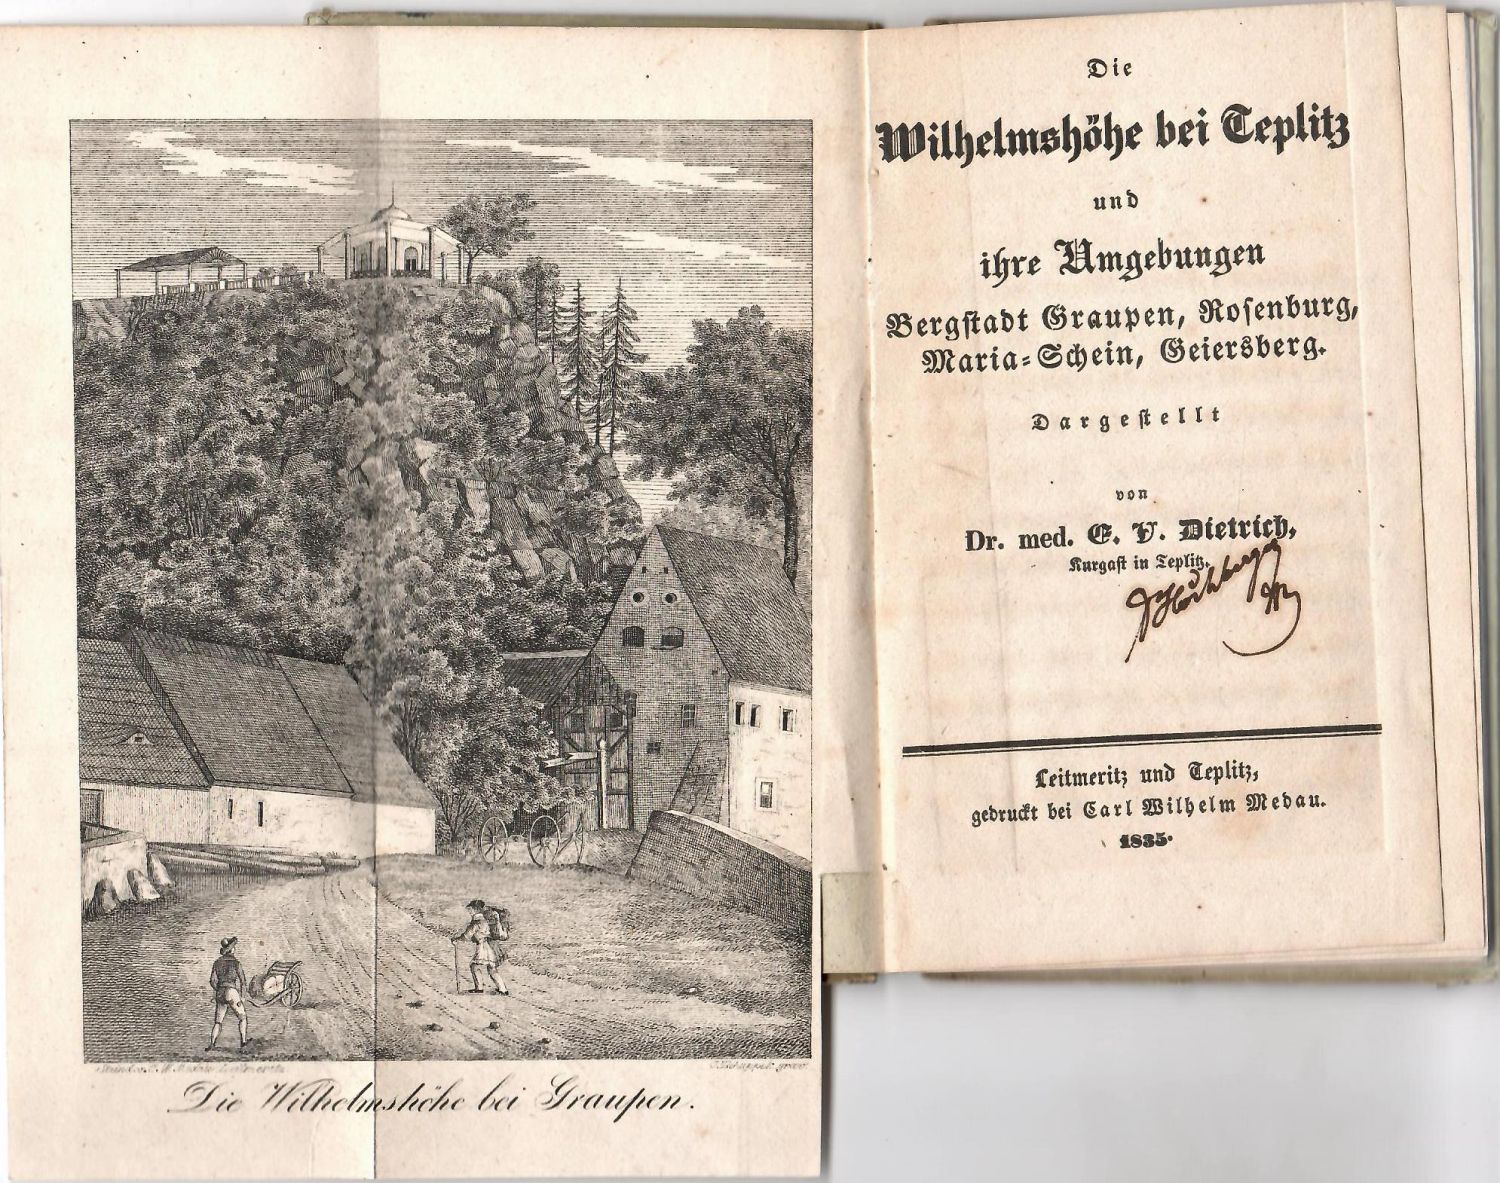 Steindr. v. C. W. Medau Leitmeritz
Die Wilhelmshöhe bei Graupen.
Die
Wilhelmshöhe bei Teplitz
und
ihre Umgebungen
Bergstadt Graupen, Rosenburg,
Maria-Schein, Geiersberg.
Dargestellt
von
Dr. med. E. V. Dietrich,
Kurgast in Teplitz.
Leitmeritz und Teplitz,
gedruckt bei Carl Wilhelm Medau.
1835.